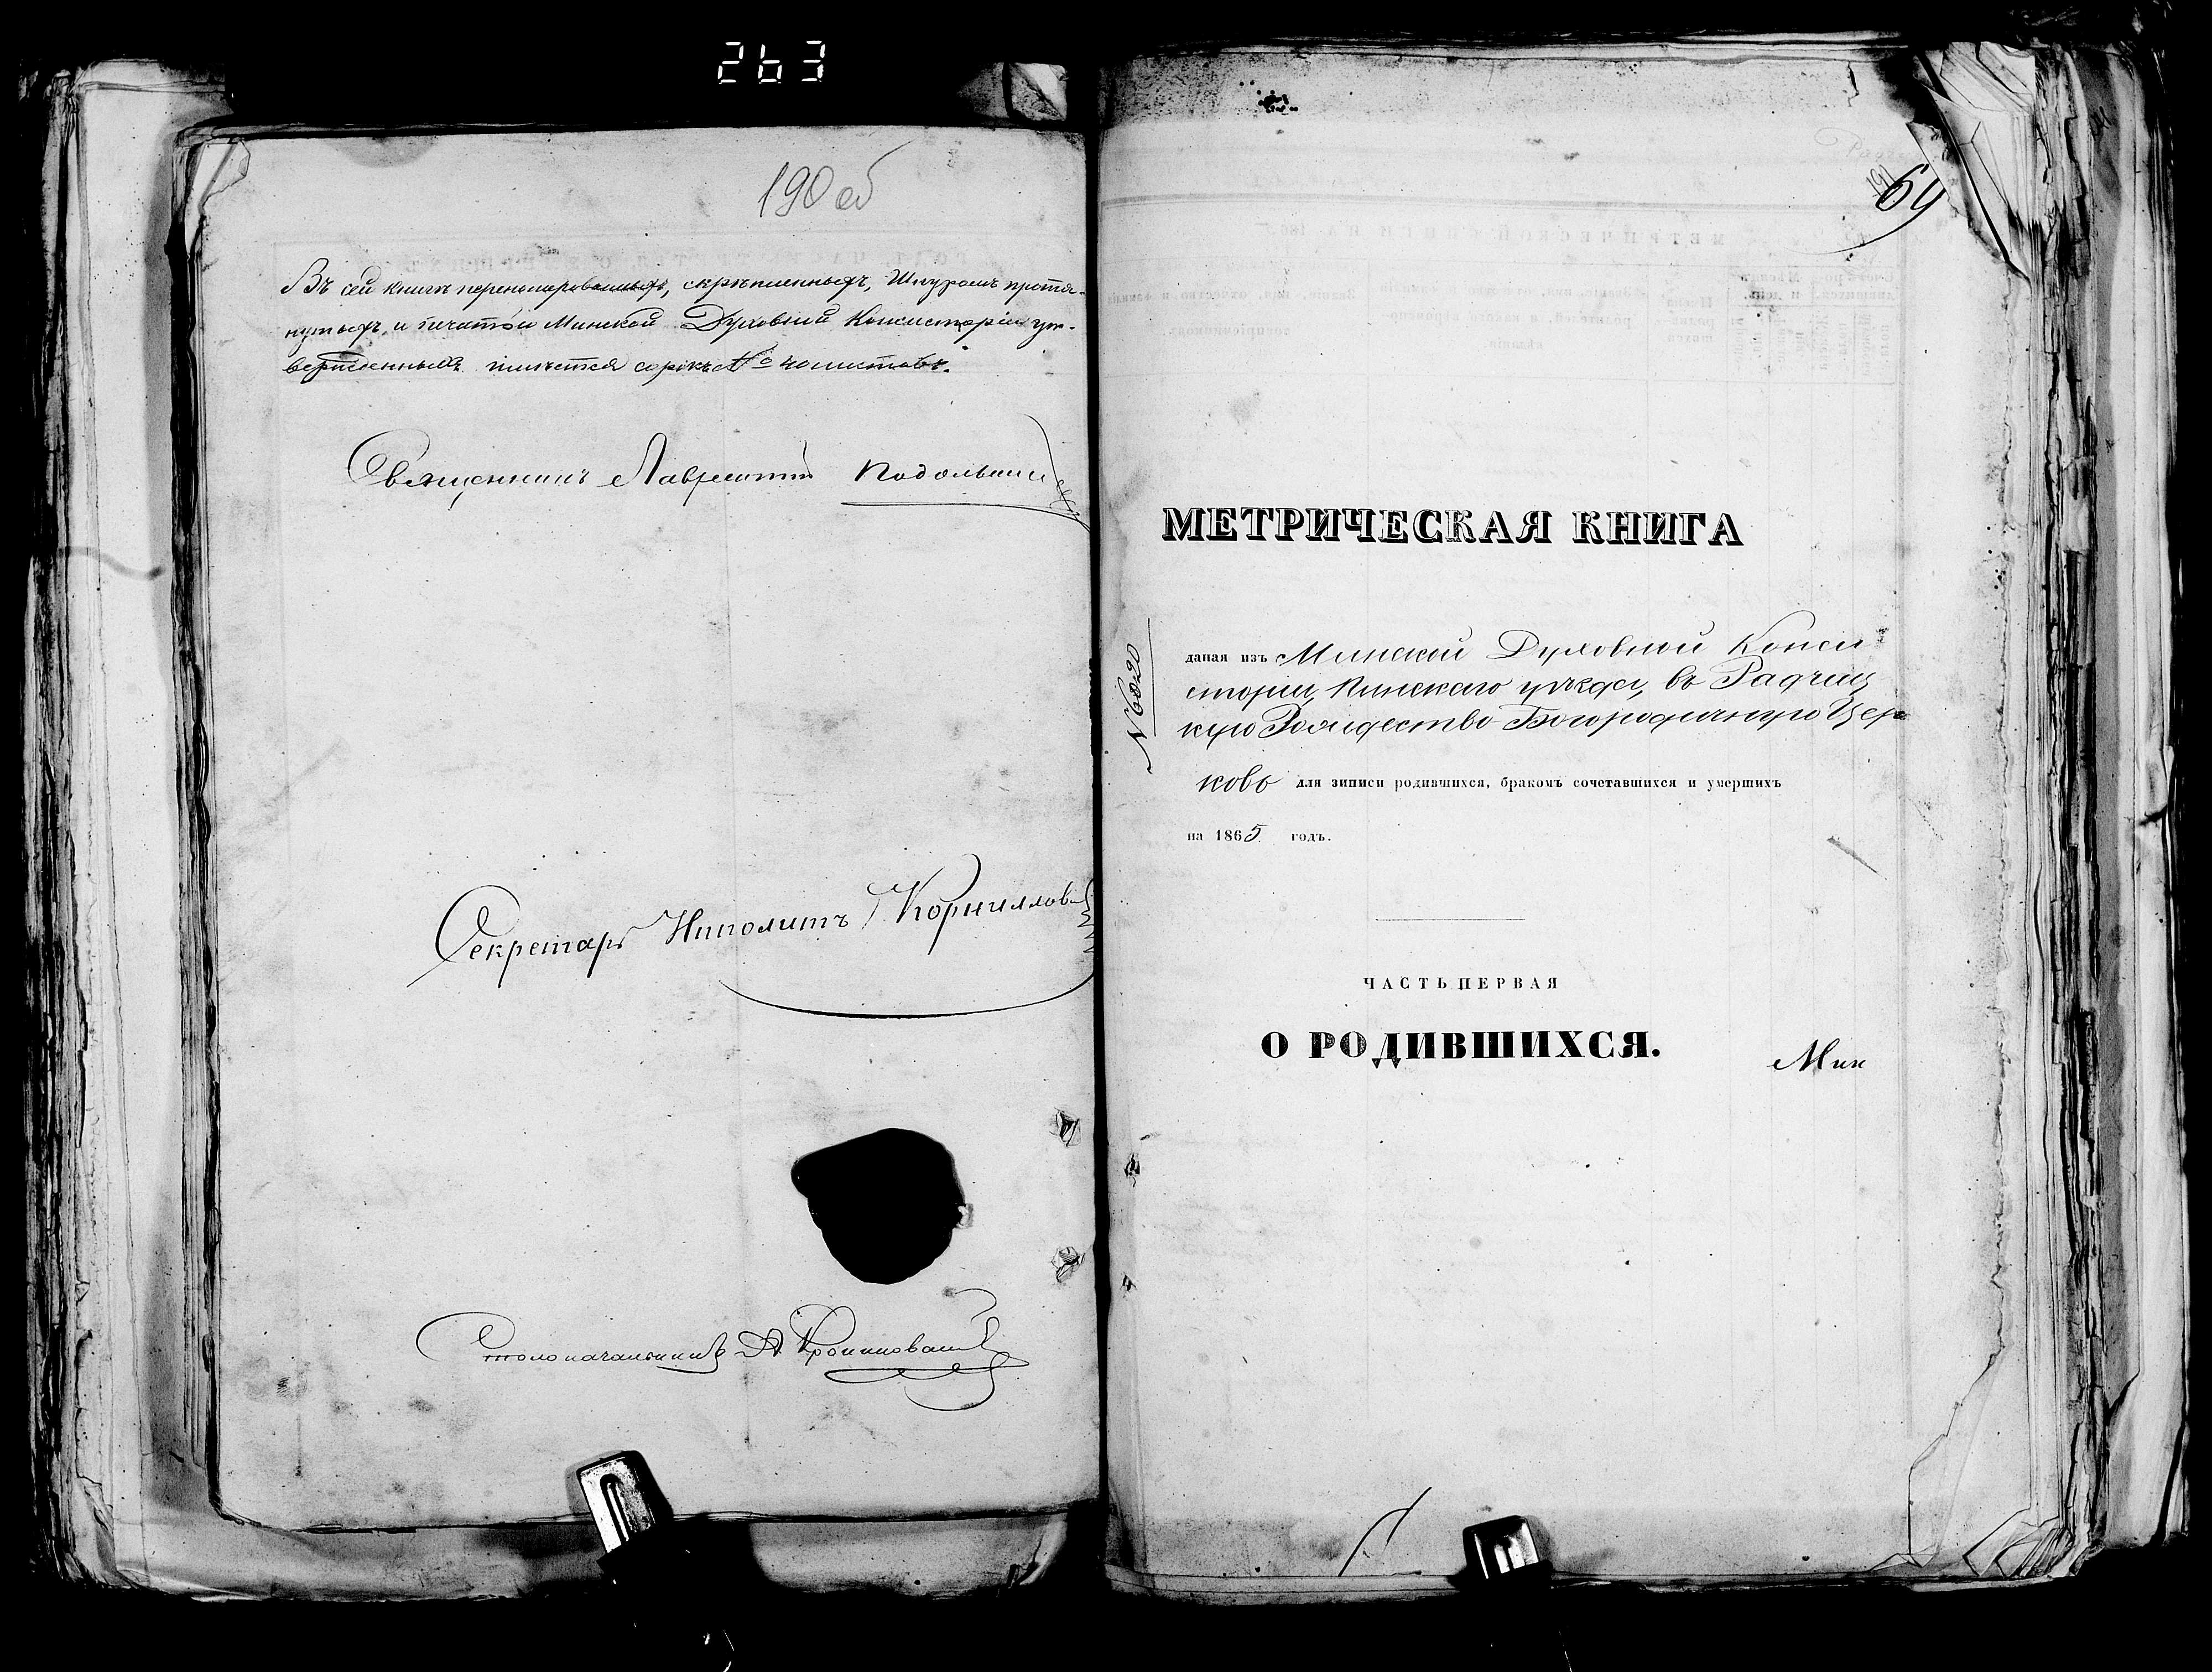 263
190 об
Въ сей книгѣ перенумерованныхъ, скрѣпленныхъ, Шнуромъ протя-
нутыхъ и печатью Минской Духовной Консисторіи ут-
вержденныхъ имѣется сорокъ № 40 листовъ.
Священникъ Лаврентій Подольскій
Секретарь Иполитъ Корнилловъ
Столоначальникъ А.
64
МЕТРИЧЕСКАЯ КНИГА
№ 6020
даная изъ Минской Духовной Конси
сторіи, Пинскаго уѣзда, въ Радчиц
кую Рождество-Богородичную Цер
ковь для записи родившихся, бракомъ сочетавшихся и умершихъ
на 1865 годъ.
ЧАСТЬ ПЕРВАЯ
О РОДИВШИХСЯ.
Мин